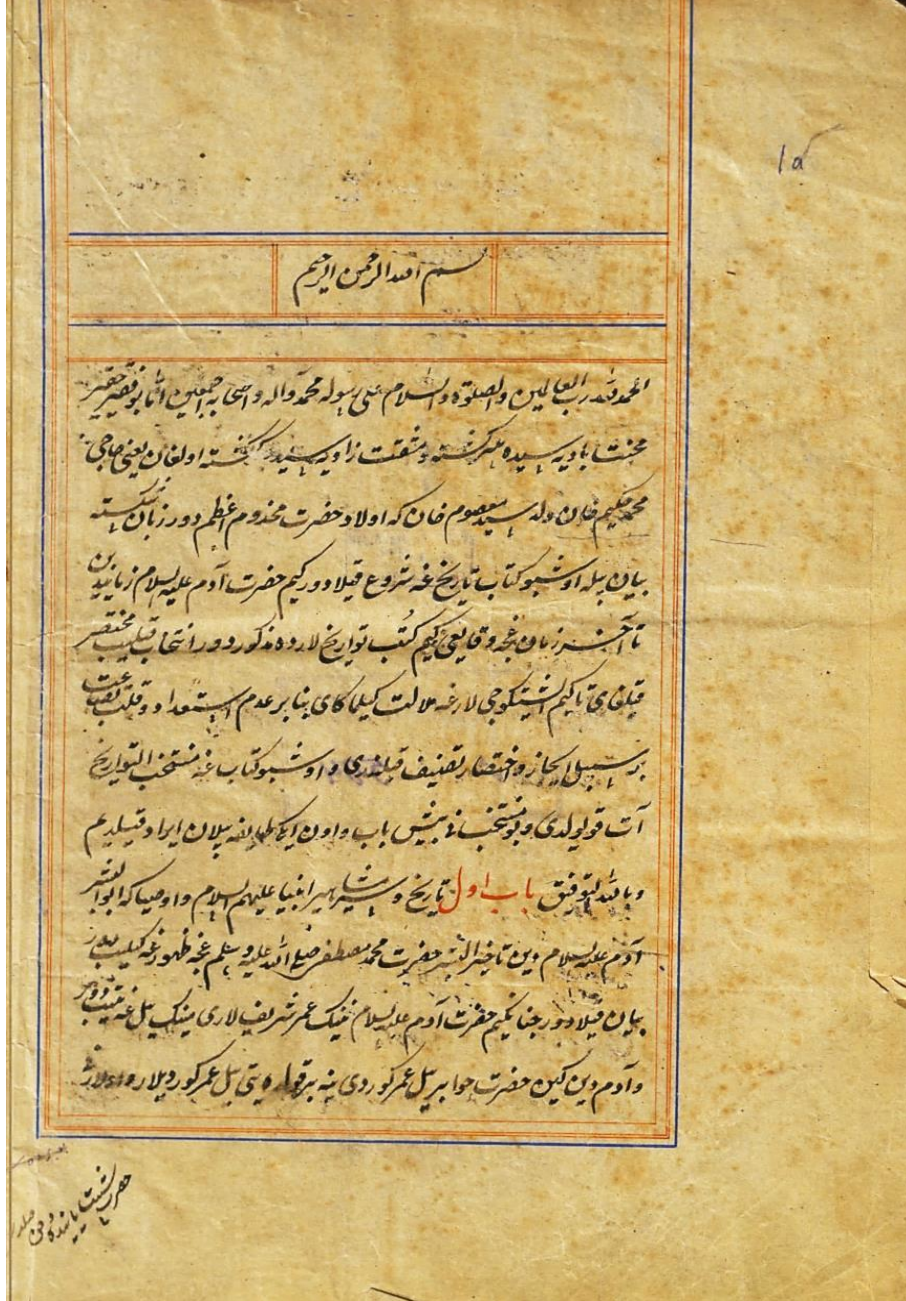 ۱۵
بسم الله الرحمن الرحیم
الحمد لله رب العالمین والصلوة والسلام علی رسوله محمد وآله واصحابه اجمعین اما بو فقیر حقیر
محنت بادیه سیده سرکشته ومشقت زاویه سیده کم کشته اولغان یعنی حاجی
محمد حکیم خان ولد سید معصوم خان که اولاد حضرت مخدوم اعظم دور زبان شکسته
بیان بیله اوشبو کتاب تاریخ غه شروع قیلادور کیم حضرت آدم علیه السلام زمانیدین
تا آخر زمان غچه وقایعی کیم کتب تواریخ لارده مذکور دور انتخاب قیلیب مختصر
قیلغای تا کیم ایشیتکوچی لارغه ملالت کیلماکای بنا بر عدم استعداد وقلت بضاعت
بر سبیل ایجاز واختصار تصنیف قیلندی واوشبو کتاب غه منتخب التواریخ
آت قویولدی وبو منتخب نی بیش باب واون ایکی طایفه بیلان ایراد قیلدیم
وبالله التوفیق باب اول تاریخ وسیر مشاهیر انبیا علیهم السلام واوصیا که ابوالبشر
آدم علیه السلام دین تا خیر البشر حضرت محمد مصطفی صلی الله علیه وسلم غچه ظهورغه کیلیب دور
بیان قیلادور چنانکیم حضرت آدم علیه السلام نینک عمر شریف لاری مینک ییل غه یتیب دور
وآدم دین کین حضرت حوا بیر ییل عمر کوردی ینه بر قولده یتی ییل عمر کوردیلار
حضرت شیث